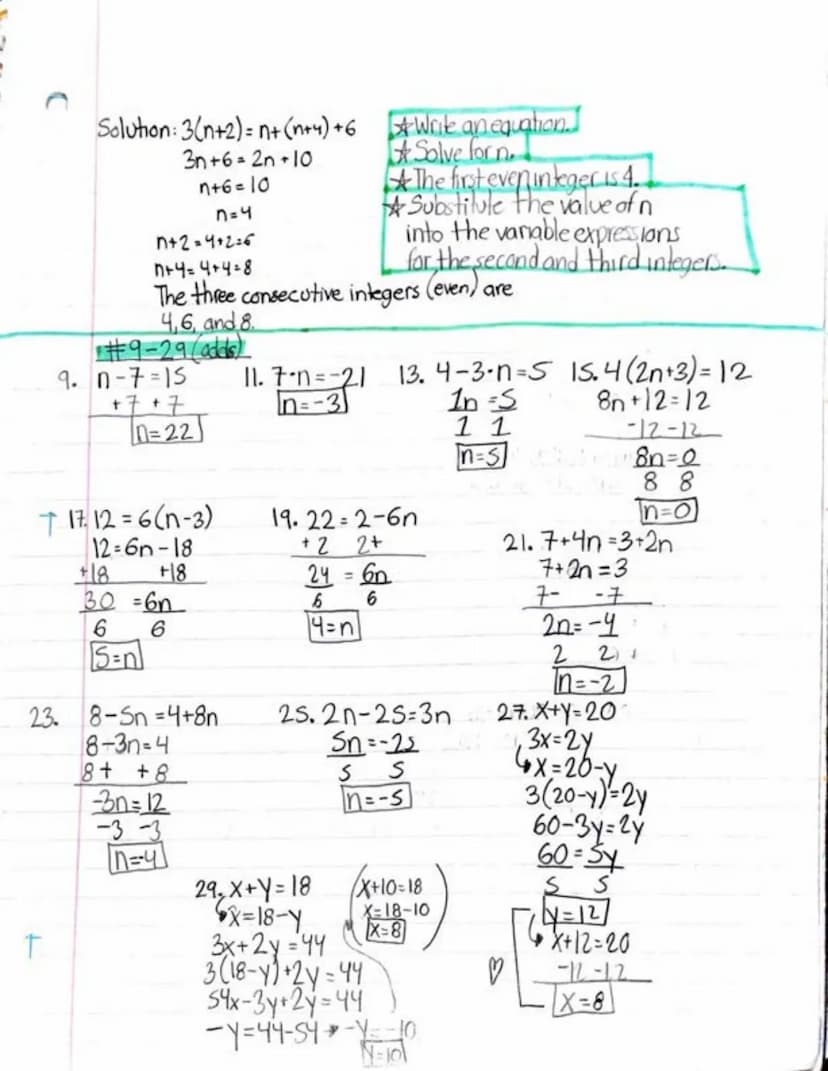 Solution: 3(n+2) = n+(n+4)+6
3n+6 = 2n+10
n+6=10
n=4
n+2=4+2=6
n+4=4+4=8
The three consecutive integers (even) are
4, 6, and 8.
☆ Write an equation.
☆ Solve for n.
☆ The first even integer is 4.
☆ Substitute the value of n
into the variable expressions
for the second and third integers.
#9-29 (odds)
9. n-7=15
+7 +7
n=22
11. 7·n=-21
n=-3
13. 4-3·n=5
1n=5
1 1
n=5
15. 4(2n+3)=12
8n+12=12
-12 -12
8n=0
8 8
n=0
↑ 17. 12=6(n-3)
12=6n-18
+18 +18
30 =6n
6 6
5=n
19. 22=2-6n
+2 2+
24 = 6n
6 6
4=n
21. 7+4n=3+2n
7+2n=3
7- -7
2n=-4
2 2
n=-2
23. 8-5n=4+8n
8-3n=4
8+ +8
-3n=12
-3 -3
n=-4
25. 2n-25=3n
5n=-25
5 5
n=-5
27. x+y=20
3x=2y
↳x=20-y
3(20-y)=2y
60-3y=2y
60=5y
5 5
y=12
↳ x+12=20
-12 -12
♡ x=8
29. x+y=18
x=18-y
3x+2y=44
3(18-y)+2y=44
54x-3y+2y=44
-y=44-54 → -y=-10
y=10
x+10=18
x=18-10
x=8
↑